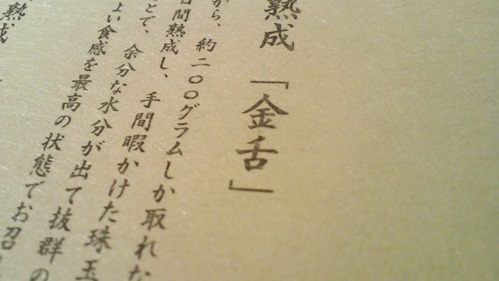 熟成「金舌」
から、約二〇〇グラムしか取れな
日間熟成し、手間暇かけた珠玉
ことで、余分な水分が出て抜群の
よい食感を最高の状態でお召し
熟成